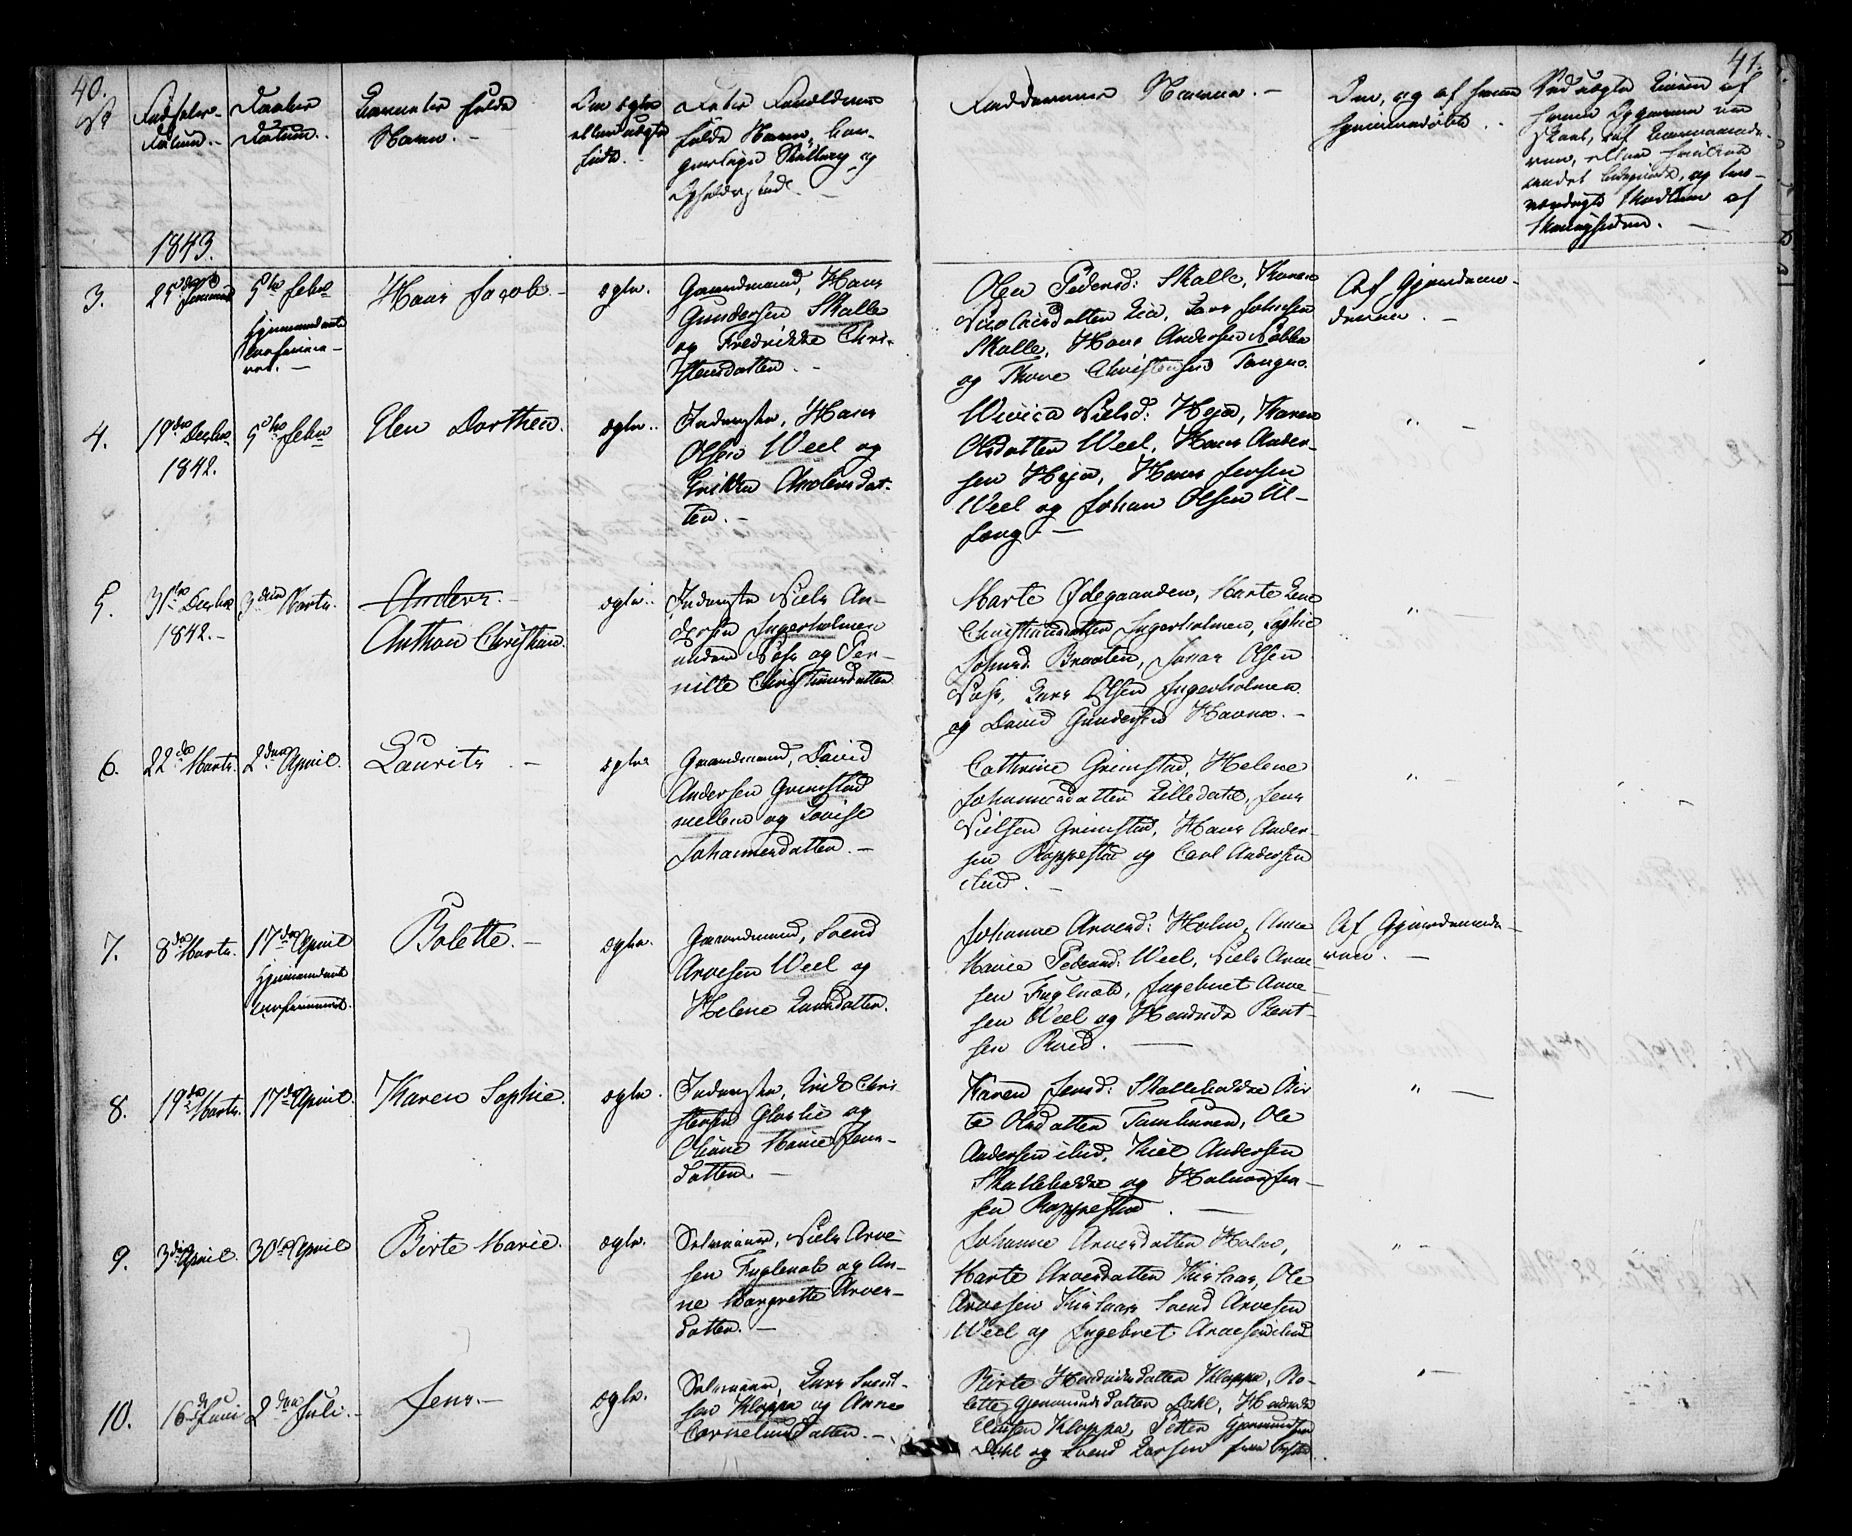 40.
41.
No
Fødsels-
Datum.
Daabs
Datum.
Barnets fulde
Navn.
Om ægte
eller uægte
født.
fulde Navn,
Opholdssted.
Faddernes Navne. -
Om, og af hvem
hjemmedøbt.
1843.
3.
25de Januar
5te Febr
Hjemmedaab
Hans Jacob. -
ægte.
Gaardmand, Hans
Gundersen Skalle
og Fredrikke Chri-
stensdatter. -
Olea Pedersd: Skalle, Karen
Nicolaisdatter Lia, Lars Johnsen
Skalle, Hans Andersen Nabben
og Thore Christensen Tangen.
Af Gjordemo-
deren. -
4.
19de Decbr
1842.
5te Febr
Elen Dorthea.
ægte.
Inderste, Hans
Olsen Weel og
Grikka Andersdat-
ter. -
Wivica Nielsd: Heja, Karen
Olsdatter Weel, Hans Ander-
sen Heja, Hans Jensen
Weel og Johan Olsen Al-
fong. -
" -
5.
31te Decbr
1842. -
3die Marts.
Anders. -
Anthon Christian.
ægte.
Inderste Niels An-
dersen Ingerholmen
under Næs og Per-
nille Christiansdatter
Marte Ødegaarden, Marte Lene
Christiansdatter Ingerholmen, Sophie
Johnsd: Braaten, Jonas Olsen
Næs, Lars Olsen Ingerholmen
og David Gundersen Havna. -
" -
6.
22de Marts.
2den April.
Laurits. -
ægte
Gaardmand, David
Andersen Grimstad
mellem og Lovise
Johannesdatter. -
Cathrine Grimstad, Helene
Johannesdatter Lilledal, Jens
Nielsen Grimstad, Hans Ander-
sen Roppestad og Carl Andersen
ibid. -
" -
7.
8de Marts.
17de April
Hjemmedaab
confirmeret.
Bolette. -
ægte.
Gaardmand, Svend
Arvesen Weel og
Helene Larsdatter.
Johanne Arvesd: Holm, Anne
Marie Pedersd: Weel, Niels Arve-
sen Fuglenæb, Ingebret Arve-
sen Weel og Hendrik Bent-
sen Ruud. -
Af Gjordemode-
ren. -
8.
19de Marts.
17de April.
Karen Sophie.
ægte.
Inderste, Erik Chri
stensen Glaslie og
Oline Marie Jens-
datter. -
Karen Jensd: Skallebakke Bir-
te Olsdatter Tomhuren, Ole
Andersen ibid, Kiel Andersen
Skallebakke og Halvor Jen-
sen Roppestad. -
" -
9.
3die April.
30te April
Birte Marie.
ægte.
Selveier, Niels Arve-
sen Fuglenæb og An-
ne Margrethe Arves-
datter. -
Johanne Arvesdatter Holm,
Marte Arvesdatter Kirsaas, Ole
Arvesen Kirsaas Svend Arvesen
Weel og Ingebret Arvesen ibid
" -
10.
16de Juni
2den Juli. -
Jens. -
ægte.
Selveier, Lars Svend-
sen Kloppa og Anne
Corneliusdatter. -
Birte Hendriksdatter Kloppa, Bo-
lette Gjermundsdatter Dahl, Hendrik
Olausen Kloppa, Petter Gjermundsen
Dahl og Svend Larsen
" -